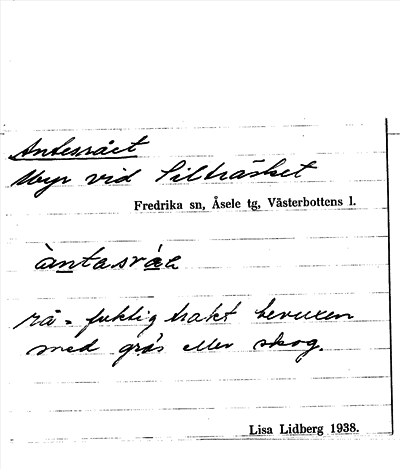 Antesrået
Myr vid Silträsket
Fredrika sn, Åsele tg, Västerbottens l.
àntasråe
rå = fuktig trakt bevuxen
med gräs eller skog.
Lisa Lidberg 1938.